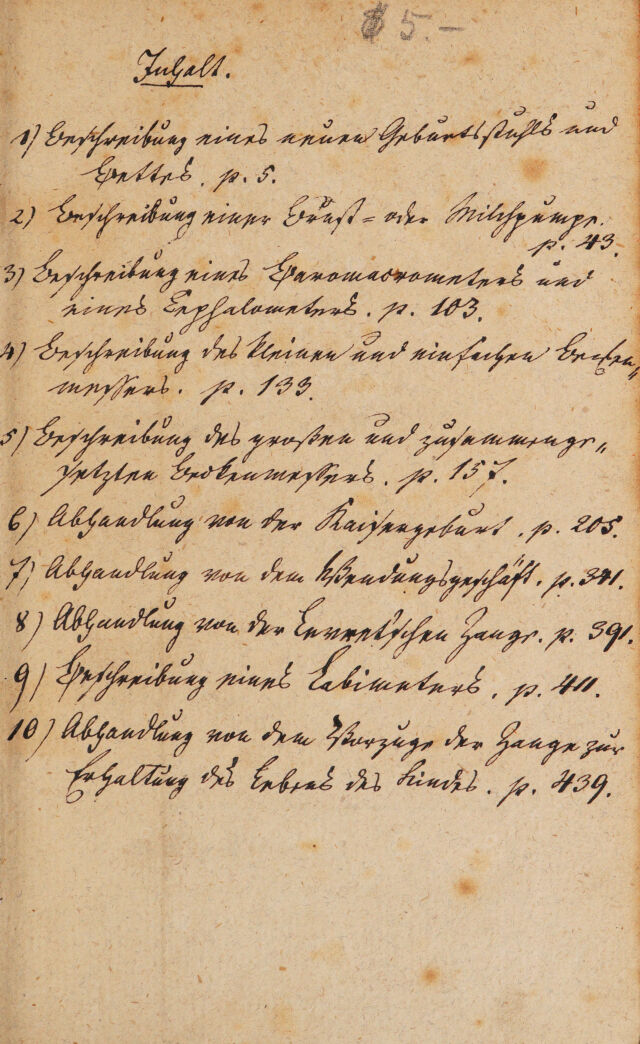 5.–
Inhalt.
1) Beschreibung eines neuen Geburtsstuhls und
Bettes. p. 5.
2) Beschreibung einer Brust= oder Milchpumpe.
p. 43.
3) Beschreibung eines Baromacrometers und
eines Cephalometers. p. 103.
4) Beschreibung des kleinen und einfachen Becken„
messers. p. 133.
5) Beschreibung des großen und zusammenge„
setzten Beckenmessers. p. 157.
6) Abhandlung von der Kaisergeburt. p. 205.
7) Abhandlung von dem Wendungsgeschäft. p. 341.
8) Abhandlung von der Levret'schen Zange. p. 391.
9) Beschreibung eines Labimeters. p. 411.
10) Abhandlung von dem Vorzuge der Zange zur
Erhaltung des Lebens des Kindes. p. 439.